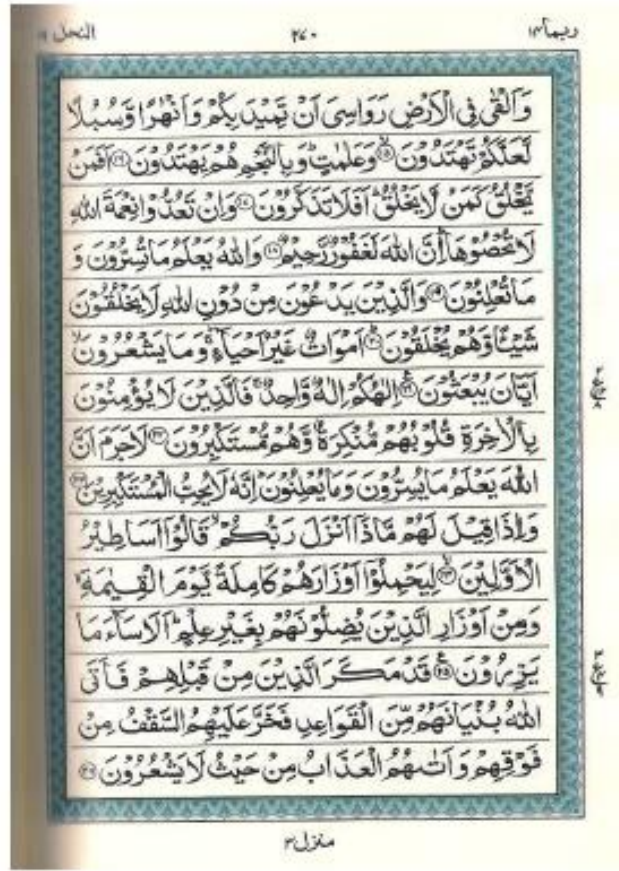 ربما ١٤
٢٧٠
النحل ١٦
وَاَلْقٰى فِى الْاَرْضِ رَوَاسِىَ اَنْ تَمِيْدَ بِكُمْ وَاَنْهٰرًا وَّسُبُلًا
لَّعَلَّكُمْ تَهْتَدُوْنَ ۙ‏﴿۱۵﴾ وَعَلٰمٰتٍ‌ؕ وَبِالنَّجْمِ هُمْ يَهْتَدُوْنَ‏ ﴿۱۶﴾ اَفَمَنْ
يَّخْلُقُ كَمَنْ لَّا يَخْلُقُ‌ؕ اَفَلَا تَذَكَّرُوْنَ‏ ﴿۱۷﴾ وَاِنْ تَعُدُّوْا نِعْمَةَ اللّٰهِ
لَا تُحْصُوْهَاؕ اِنَّ اللّٰهَ لَغَفُوْرٌ رَّحِيْمٌ‏ ﴿۱۸﴾ وَاللّٰهُ يَعْلَمُ مَا تُسِرُّوْنَ وَ
مَا تُعْلِنُوْنَ‏ ﴿۱۹﴾ وَالَّذِيْنَ يَدْعُوْنَ مِنْ دُوْنِ اللّٰهِ لَا يَخْلُقُوْنَ
شَيْــًٔا وَّهُمْ يُخْلَقُوْنَؕ‏ ﴿۲۰﴾ اَمْوَاتٌ غَيْرُ اَحْيَآءٍ‌ ۚ وَمَا يَشْعُرُوْنَ ۙ
اَيَّانَ يُبْعَثُوْنَ‏ ﴿۲۱﴾ اِلٰهُكُمْ اِلٰهٌ وَّاحِدٌ‌ ۚ فَالَّذِيْنَ لَا يُؤْمِنُوْنَ
بِالْاٰخِرَةِ قُلُوْبُهُمْ مُّنْكِرَةٌ وَّهُمْ مُّسْتَكْبِرُوْنَ‏ ﴿۲۲﴾ لَا جَرَمَ اَنَّ
اللّٰهَ يَعْلَمُ مَا يُسِرُّوْنَ وَمَا يُعْلِنُوْنَ‌ؕ اِنَّهٗ لَا يُحِبُّ الْمُسْتَكْبِرِيْنَ‏ ﴿۲۳﴾
وَاِذَا قِيْلَ لَهُمْ مَّاذَاۤ اَنْزَلَ رَبُّكُمْ‌ۙ قَالُوْۤا اَسَاطِيْرُ
الْاَوَّلِيْنَۙ‏ ﴿۲۴﴾ لِيَحْمِلُوْۤا اَوْزَارَهُمْ كَامِلَةً يَّوْمَ الْقِيٰمَةِ‌ۙ
وَمِنْ اَوْزَارِ الَّذِيْنَ يُضِلُّوْنَهُمْ بِغَيْرِ عِلْمٍ‌ؕ اَلَا سَآءَ مَا
يَزِرُوْنَ‏ ﴿۲۵﴾ قَدْ مَكَرَ الَّذِيْنَ مِنْ قَبْلِهِمْ فَاَتَى
اللّٰهُ بُنْيَانَهُمْ مِّنَ الْقَوَاعِدِ فَخَرَّ عَلَيْهِمُ السَّقْفُ مِنْ
فَوْقِهِمْ وَاَتٰٮهُمُ الْعَذَابُ مِنْ حَيْثُ لَا يَشْعُرُوْنَ‏ ﴿۲۶﴾
منزل ٣